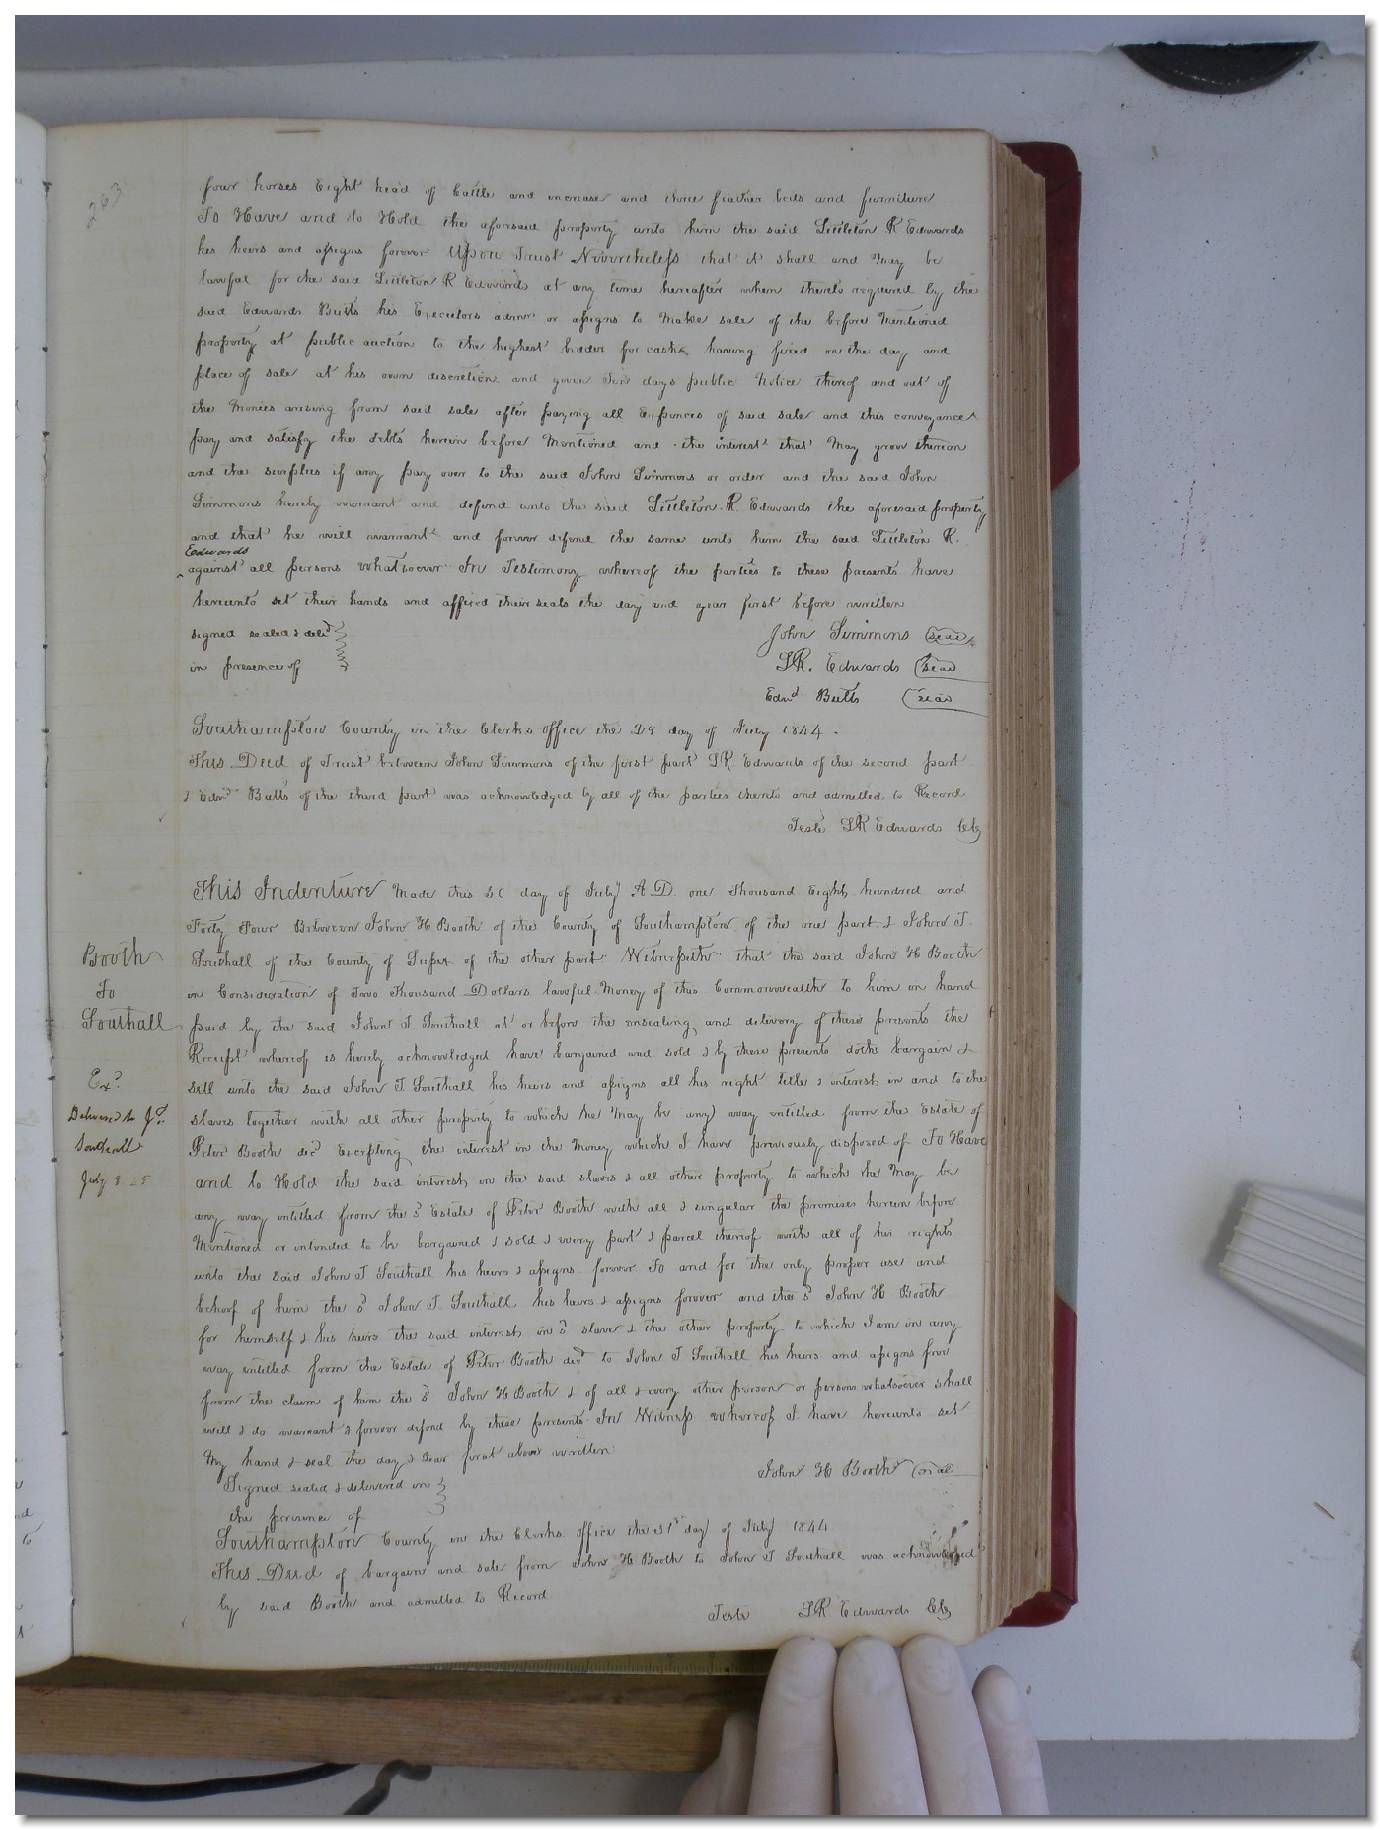 263
four horses Eight head of Cattle and increase and three feather beds and furniture
To Have and to Hold the aforsaid property unto him the said Littleton R Edwards
his heirs and assigns forever Upon Trust Nevertheless that it shall and May be
lawful for the said Littleton R Edwards at any time hereafter when thereto required by the
said Edwards Butts his Executors admrs or assigns to Make sale of the before Mentioned
property at public auction to the highest bidder for cash having fixed on the day and
place of sale at his own discretion and given Ten days public Notice thereof and out of
the Monies arising from said sale after paying all Expences of said sale and this conveyance
pay and satisfy the debts herein before Mentioned and the interest that May grow thereon
and the surplus if any pay over to the said John Simmons or order and the said John
Simmons hereby warrant and defend unto the said Littleton R. Edwards the aforesaid property
and that he will warrant and forever defend the same unto him the said Littleton R.
Edwards
against all persons whatsoever In Testimony whereof the parties to these presents have
hereunto set their hands and affixed their seals the day and year first before written
signed sealed & delid
in presence of
John Simmons seal
LR. Edwards seal
Edwd Butts seal
Southampton County in the Clerks office the 29 day of July 1844.
This Deed of Trust between John Simmons of the first part LR Edwards of the second part
& Edwd Butts of the third part was acknowledged by all of the parties thereto and admitted to Record
Teste LR Edwards Clk
This Indenture Made this day of July A.D. one Thousand Eight hundred and
Forty Four Between John H Booth of the County of Southampton of the one part & John T.
Booth
To
Southall
Southall of the County of Sussex of the other part Witnesseth that the said John H Booth
in Consideration of Two Thousand Dollars lawful Money of this Commonwealth to him in hand
paid by the said John T. Southall at or before the ensealing and delivery of these presents the
Receipt whereof is hereby acknowledged have bargained and sold & by these presents doth bargain &
sell unto the said John T Southall his heirs and assigns all his right title & interest in and to the
Exd
Delivered to Jn.
Southall
July 8
slaves together with all other property to which he May be any way entitled from the Estate of
Peter Booth decd Excepting the interest in the Money which I have previously disposed of To Have
and to Hold the said interest in the said slaves & all other property to which he May be
any way entitled from the sd Estate of Peter Booth with all & singular the premises herein before
Mentioned or intended to be bargained & sold & every part & parcel thereof with all of his rights
unto the said John T Southall his heirs & assigns forever To and for the only proper use and
behoof of him the sd John T. Southall his heirs & assigns forever and the sd John H Booth
for himself & his heirs the said interest in sd slaves & the other property to which I am in any
way entitled from the Estate of Peter Booth decd to John T Southall his heirs and assigns free
from the claim of him the sd John H Booth & of all & every other person or persons whatsoever shall
will & do warrant & forever defend by these presents In Witness whereof I have hereunto set
My hand & seal the day & year first above written
John H Booth seal
Signed sealed & delivered in
the presence of
Southampton County in the Clerks office the 31st day of July 1844
This Deed of bargain and sale from John H Booth to John T Southall was acknowledged
by said Booth and admitted to Record
Teste LR Edwards Clk